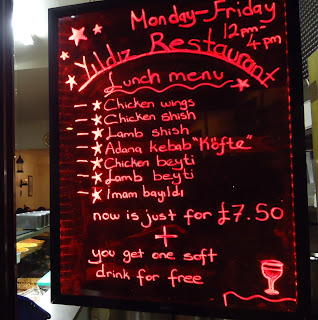 Monday-Friday
12pm-
4pm
Yıldız Restaurant
Lunch menu
Chicken wings
Chicken shish
Lamb shish
Adana kebab "Köfte"
Chicken beyti
Lamb beyti
Imam bayıldı
now is just for £7.50
+
you get one soft
drink for free